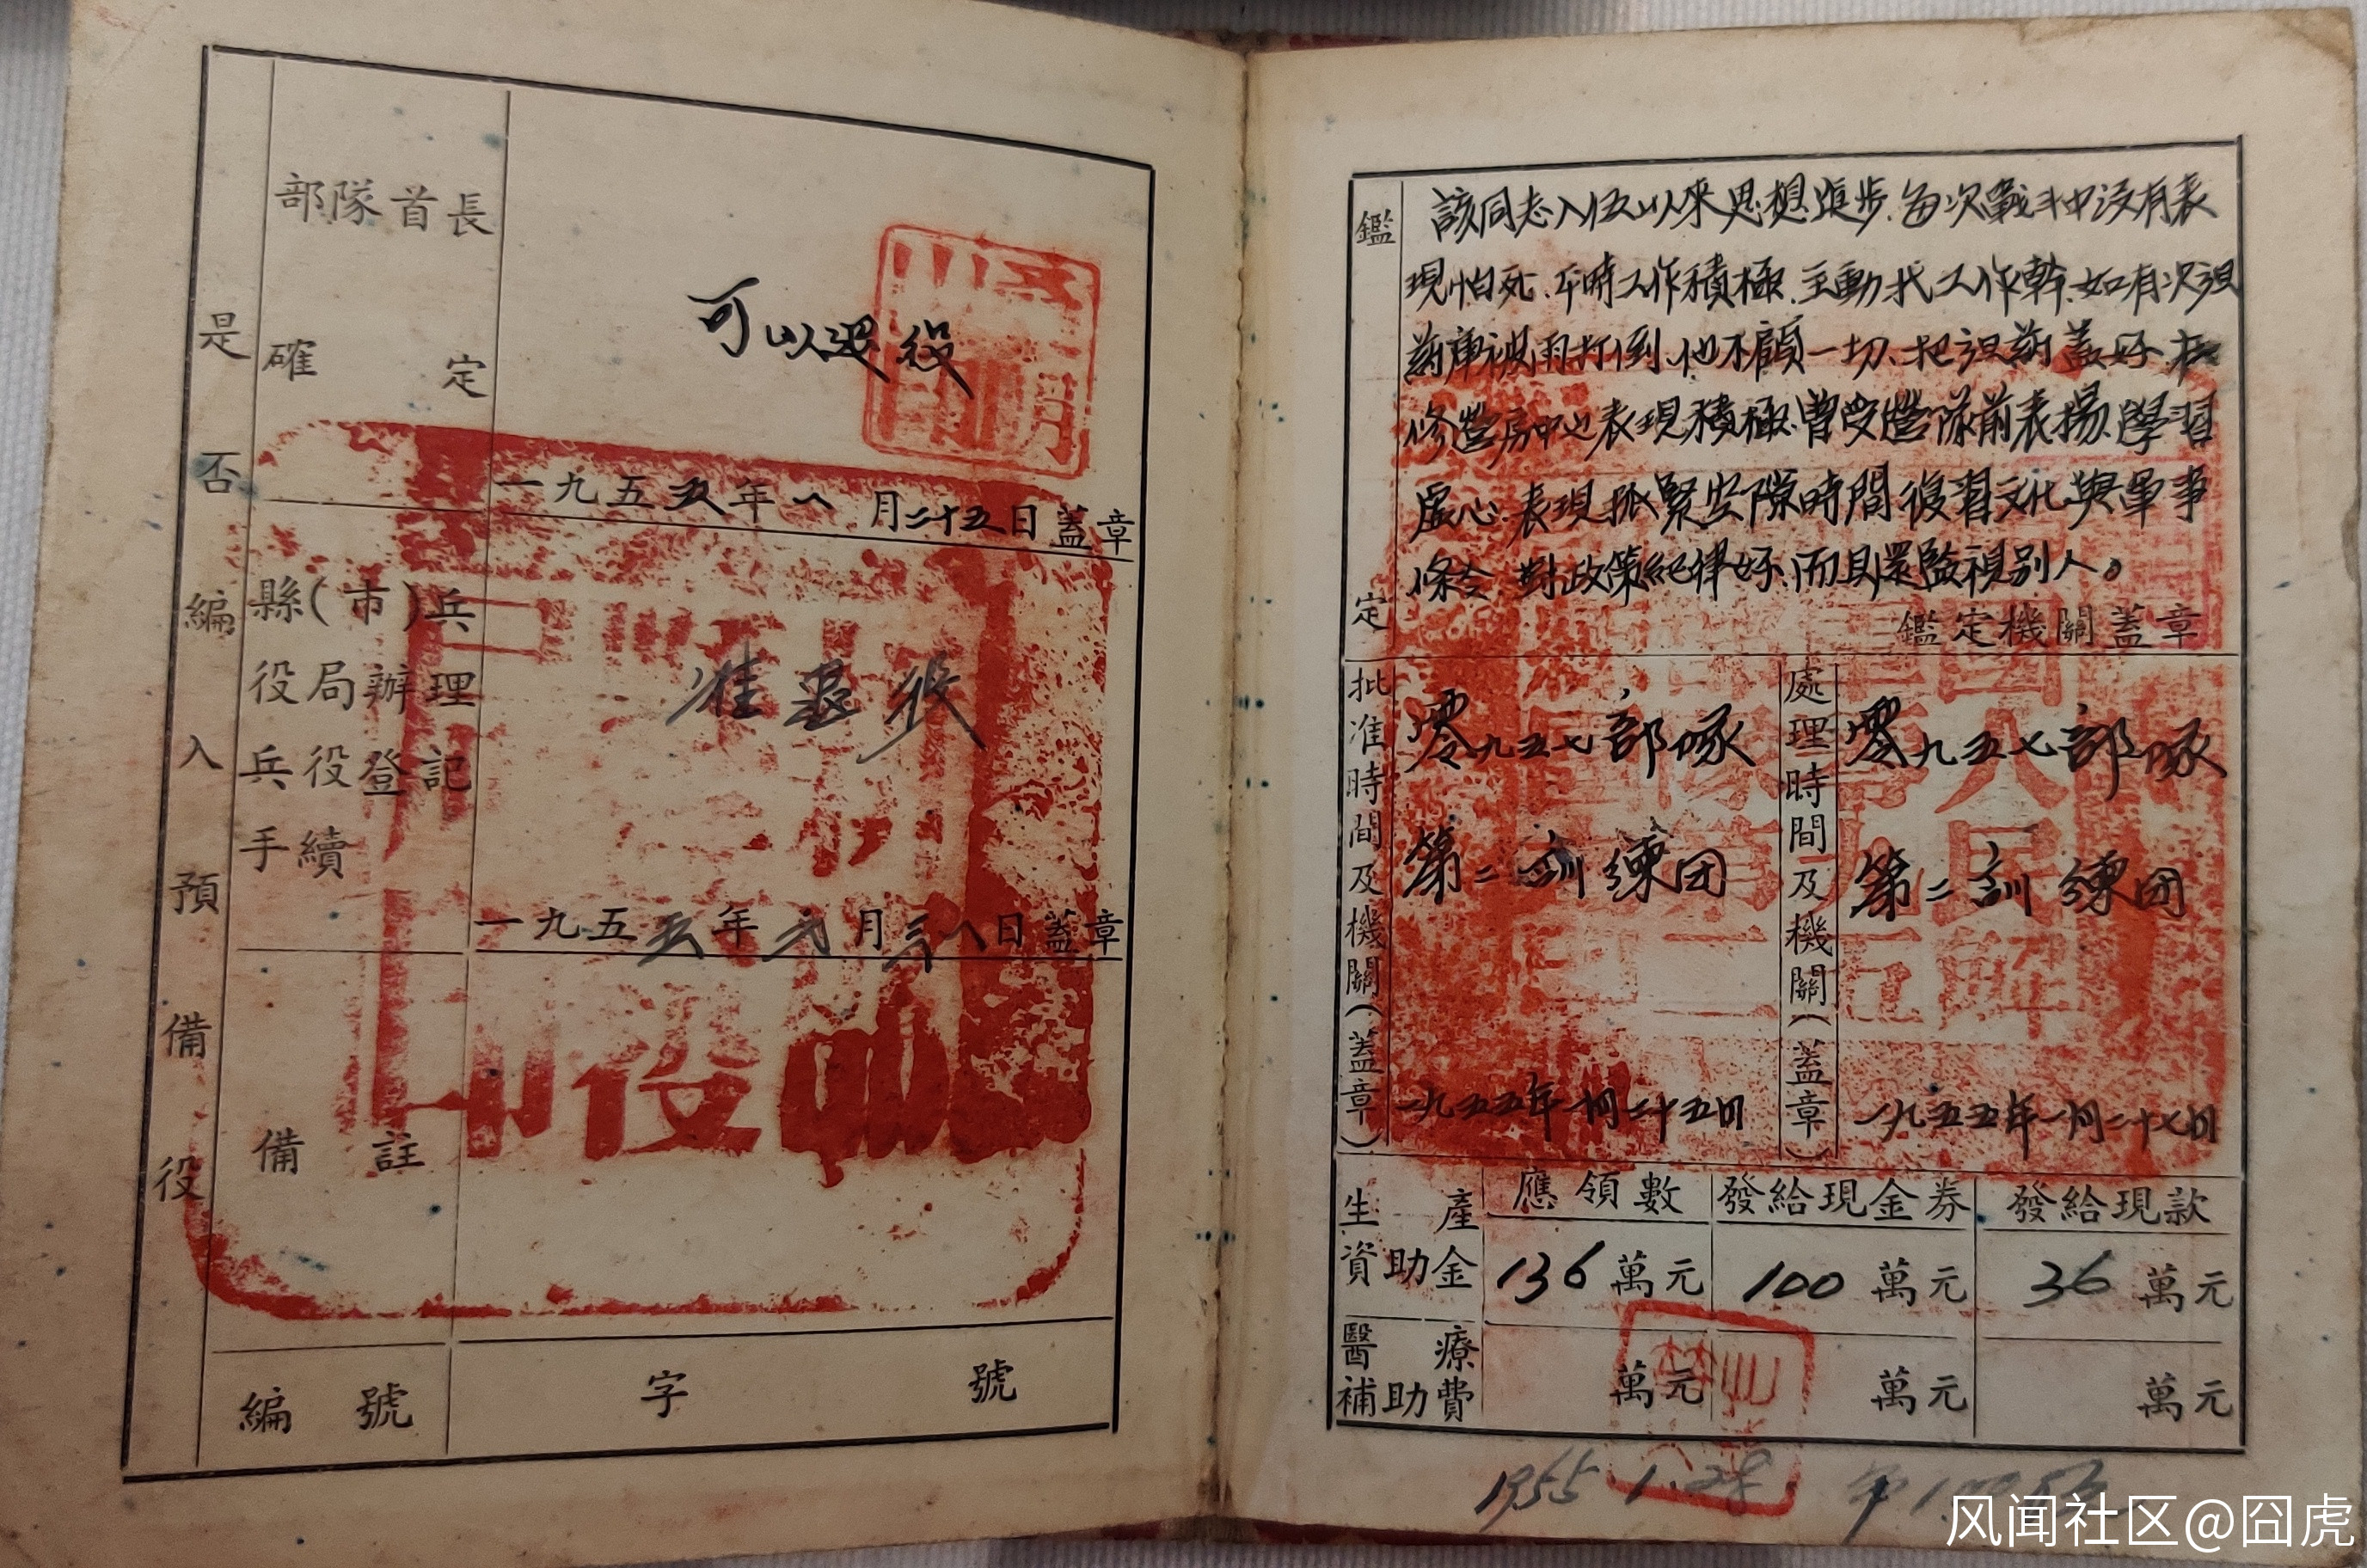 是否編入預備役
部隊首長
確定
可以退役
一九五五年一月二十五日蓋章
縣(市)兵
役局辦理
兵役登記
手續
准退役
一九五五年 月 日蓋章
備註
編號
字 號
鑑定
該同志入伍以來思想進步.每次戰斗中没有表
現怕死.平時工作積極.主動找工作幹.如有次
被雨打倒.他不顧一切.把 蓋好.在
修營房中也表現積極.曾受營隊前表揚.學習
虛心.表現抓緊空隙時間復習文化與軍事
條令.對政策紀律好.而且還監視别人。
鑑定機關蓋章
批准時間及機關(蓋章)
零九五七部隊
第二訓練团
一九五五年一月二十五日
處理時間及機關(蓋章)
零九五七部隊
第二訓練团
一九五五年一月二十七日
生產
資助金
應領數
發給現金券
發給現款
136萬元
100萬元
36萬元
醫療
補助費
萬元
萬元
萬元
1955 1.28
风闻社区@囧虎